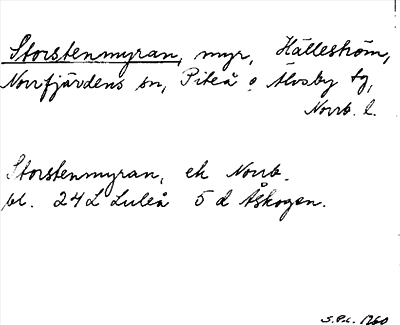 Storstenmyran, myr, Hälleström,
Norrfjärdens sn, Piteå o Älvsby tg,
Norrb. l.
Storstenmyran, ek Norrb.
bl. 24 L Luleå 5 d Åskogen.
S.P.L. 1960